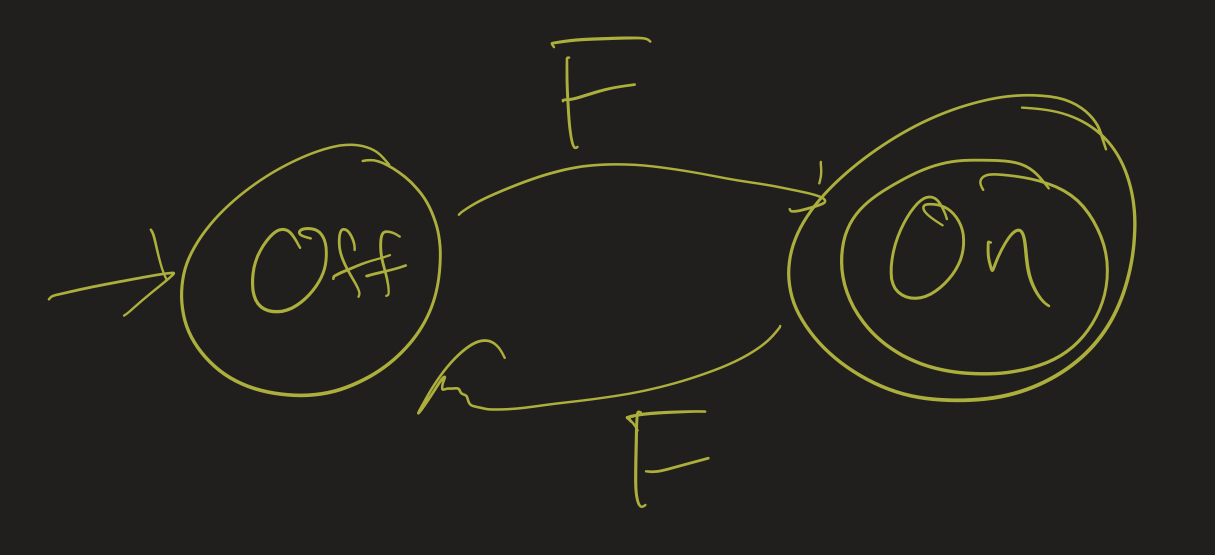 F
Off
On
F